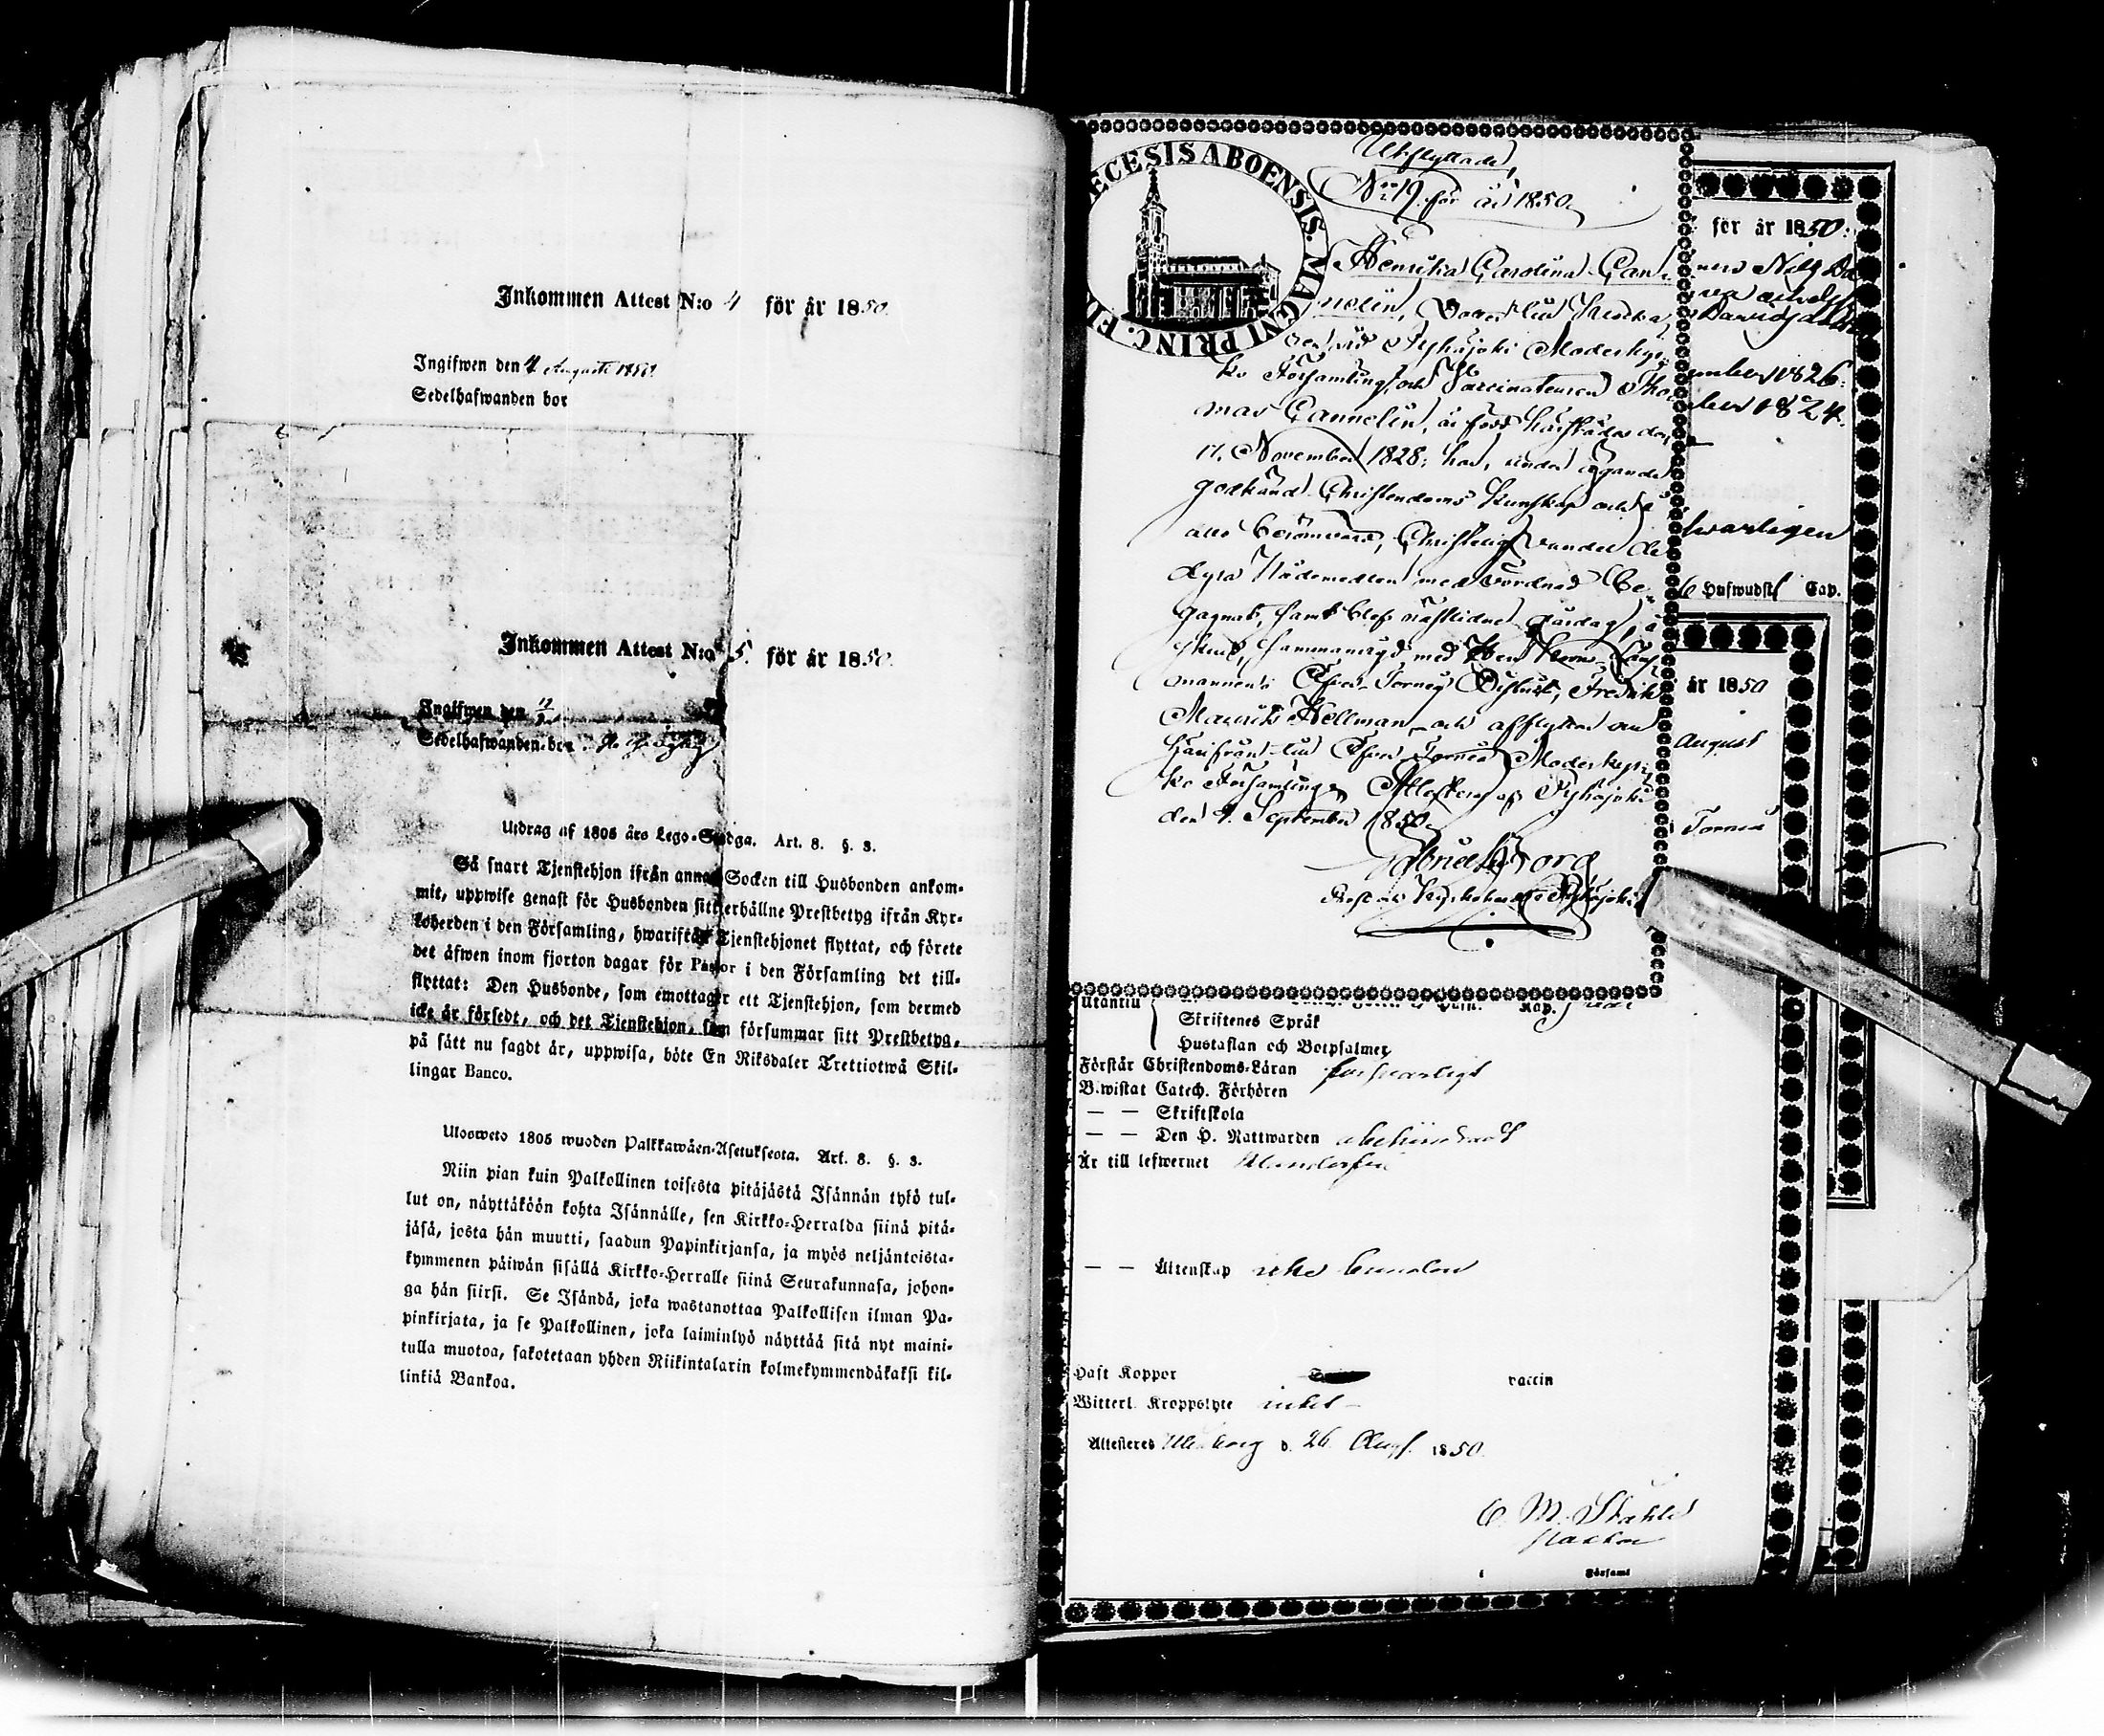 Inkommen Attest N:o 4 för år 1850.
Ingifwen den 4 Augusti 1850.
Sedelhafwanden bor
Inkommen Attest N:o 5. för år 1850.
Ingifwen den
Sedelhafwanden bor
Utdrag af 1805 års Lego-Stadga. Art. 8. §. 3.
Så snart Tjenstehjon ifrån annan Socken till Husbonden ankom-
mit, uppwise genast för Husbonden sitt erhållne Prestbetyg ifrån Kyr-
koherden i den Församling, hwarifrån Tjenstehjonet flyttat, och förete
det äfwen inom fjorton dagar för Pastor i den Församling det till-
flyttat: Den Husbonde, som emottager ett Tjenstehjon, som dermed
icke är försedt, och det Tjenstehjon, som försummar sitt Prestbetyg,
på sätt nu sagdt är, uppwisa, böte En Riksdaler Trettiotwå Skil-
lingar Banco.
Ulosweto 1805 wuoden Palkkawäen-Asetuksesta. Art. 8. §. 3.
Niin pian kuin Palkollinen toisesta pitäjästä Isännän tykö tul-
lut on, näyttäköön kohta Isännälle, sen Kirkko-Herralda siinä pitä-
jäsä, josta hän muutti, saadun Papinkirjansa, ja myös neljäntoista-
kymmenen päiwän sisällä Kirkko-Herralle siinä Seurakunnasa, johon-
ga hän siirsi. Se Isändä, joka wastanottaa Palkollisen ilman Pa-
pinkirjata, ja se Palkollinen, joka laiminlyö näyttää sitä nyt maini-
tulla muotoa, sakotetaan yhden Riikintalarin kolmekymmendäkaksi kil-
linkiä Bankoa.
ECESIS ABOENSIS. MAGNI PRINC. FI
Utflyttade,
No 19. för år 1850.
Henrika Carolina Can-
nelin, Dotter till Klocka-
ren vid Pyhäjoki Moderkyr-
ko Församling och Vaccinateuren Tho-
mas Cannelin, är född härstädes den
17. November 1828; har, under ägande
godkänd Christendoms kunskap och i
allo berömvärd, Christelig vandel de
dyra Nådemedlen med vördnad be-
gagnat, samt blef nästlidne
sammanvigd med
mannen i Öfver-Torneå District, Fredrik
Maurits Hellman och afflyttar nu
härifrån till Öfver Torneå Moderkyr-
ko Församling. Attesterar af Pyhäjoki
den 9. September 1850.
Gabriel Borg
Prost och Kyrkoherde i Pyhäjoki
för år 1850.
ember 1826.
ber 1824.
swarligen
Hufwudst Cap.
år 1850
August
Torneå
Utantill
Skriftenes Språk
Hustaflan och Botpsalmer
Förstår Christendoms-Läran försvarligt
Bewistat Catech. Förhören
— — Skriftskola
— — Den H. Nattwarden
Är till lefwernet
— — Äktenskap icke bunden
Haft Koppor vaccin
Witterl. Kroppslyte intet
Attesteras Uleåborg d. 26 Aug. 1850.
C. M. Ståhle
i Församl